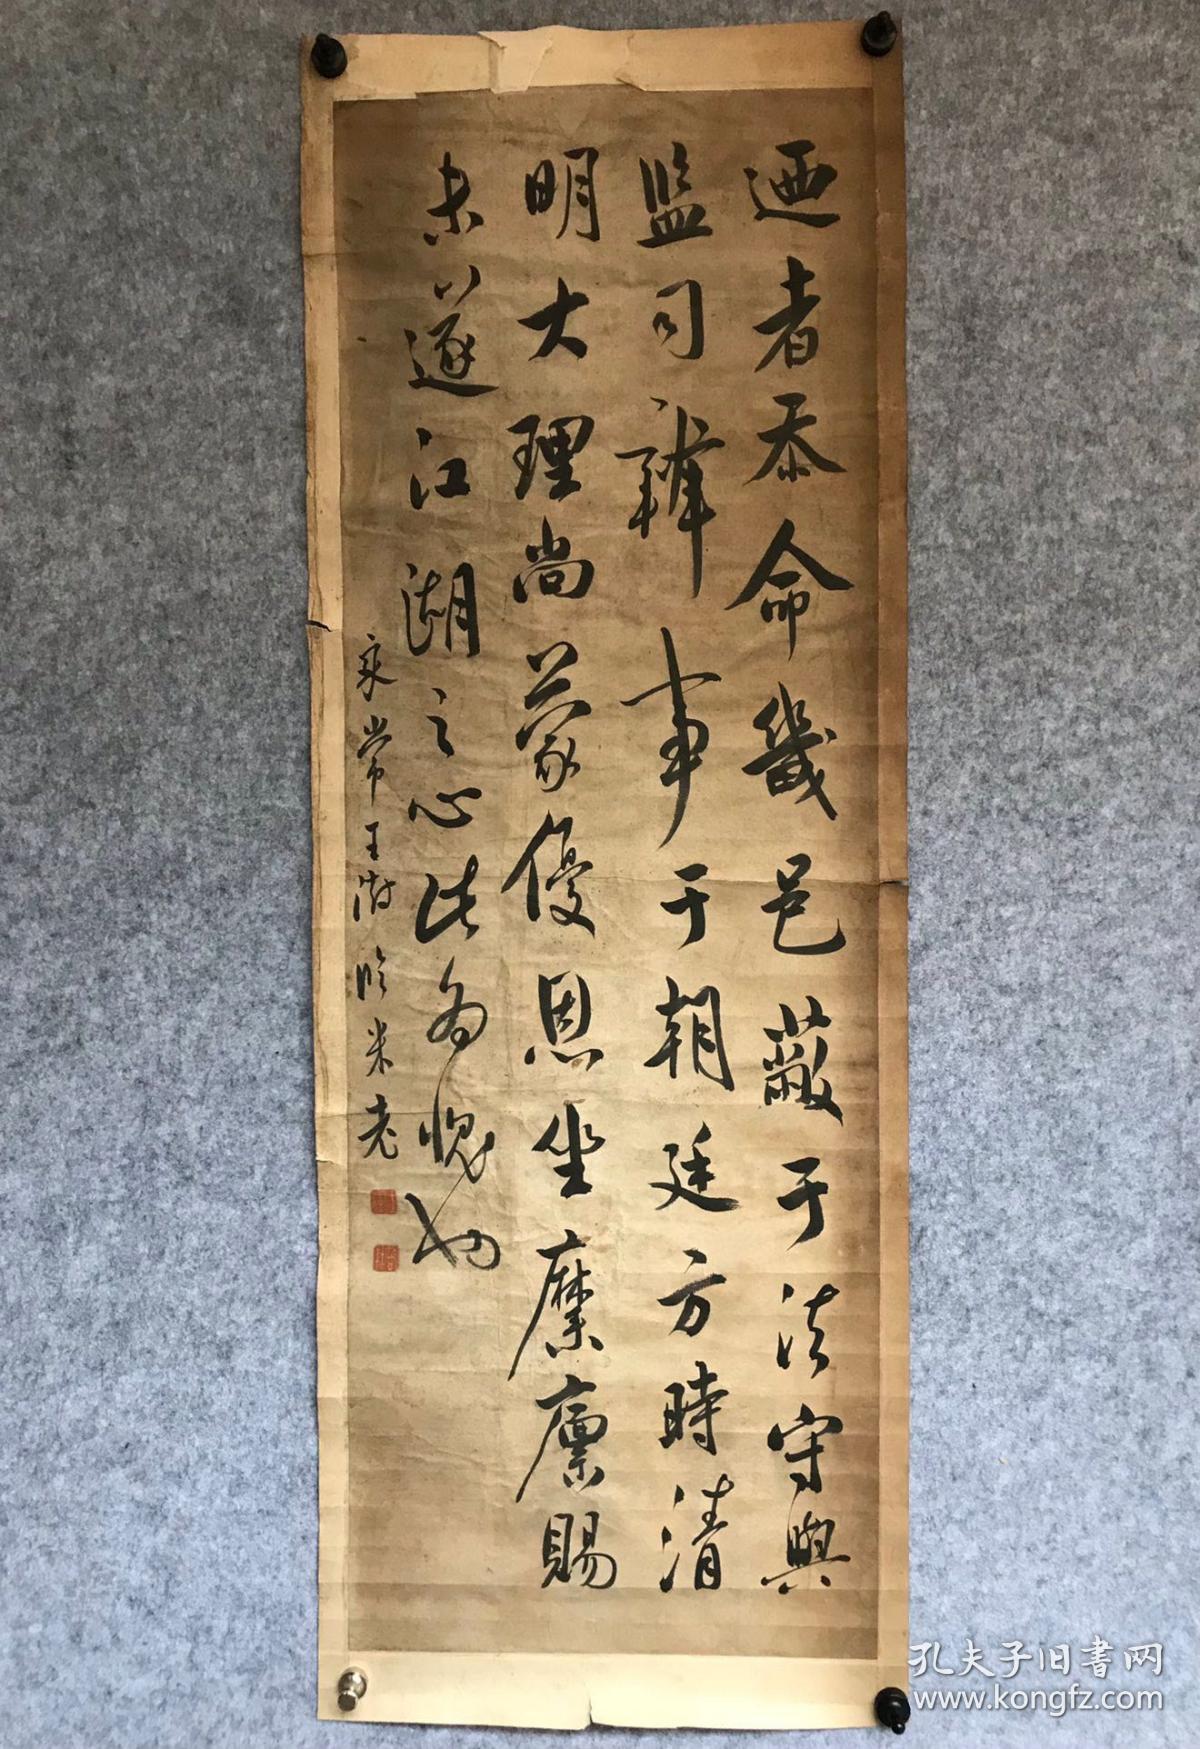 迺者忝命畿邑蔽于法守與
监司辨事于朝廷方時清
明大理尚蒙優恩坐縻廪賜
未遂江湖之心此為愧也
良常王澍临米老
孔夫子旧書网
www.kongfz.com